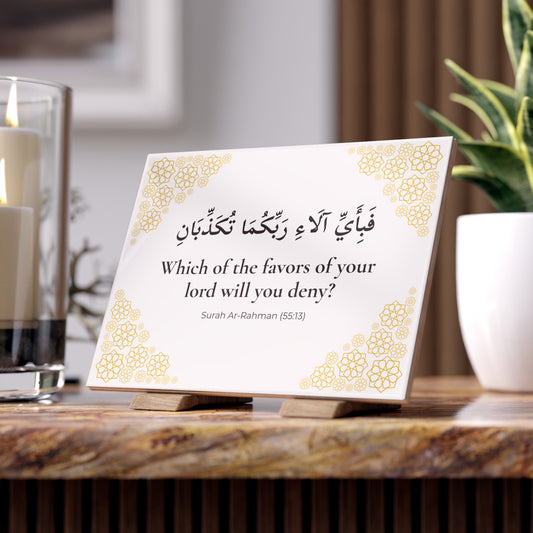 فَبِأَيِّ آلَاءِ رَبِّكُمَا تُكَذِّبَانِ
Which of the favors of your
lord will you deny?
Surah Ar-Rahman (55:13)